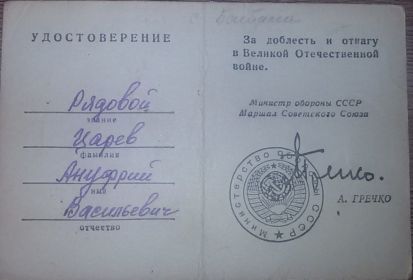 УДОСТОВЕРЕНИЕ
Рядовой
звание
Царев
фамилия
Ануфрий
имя
Васильевич
отчество
За доблесть и отвагу
в Великой Отечественной
войне.
Министр обороны СССР
Маршал Советского Союза
МИНИСТЕРСТВО ОБОРОНЫ СССР
А. ГРЕЧКО